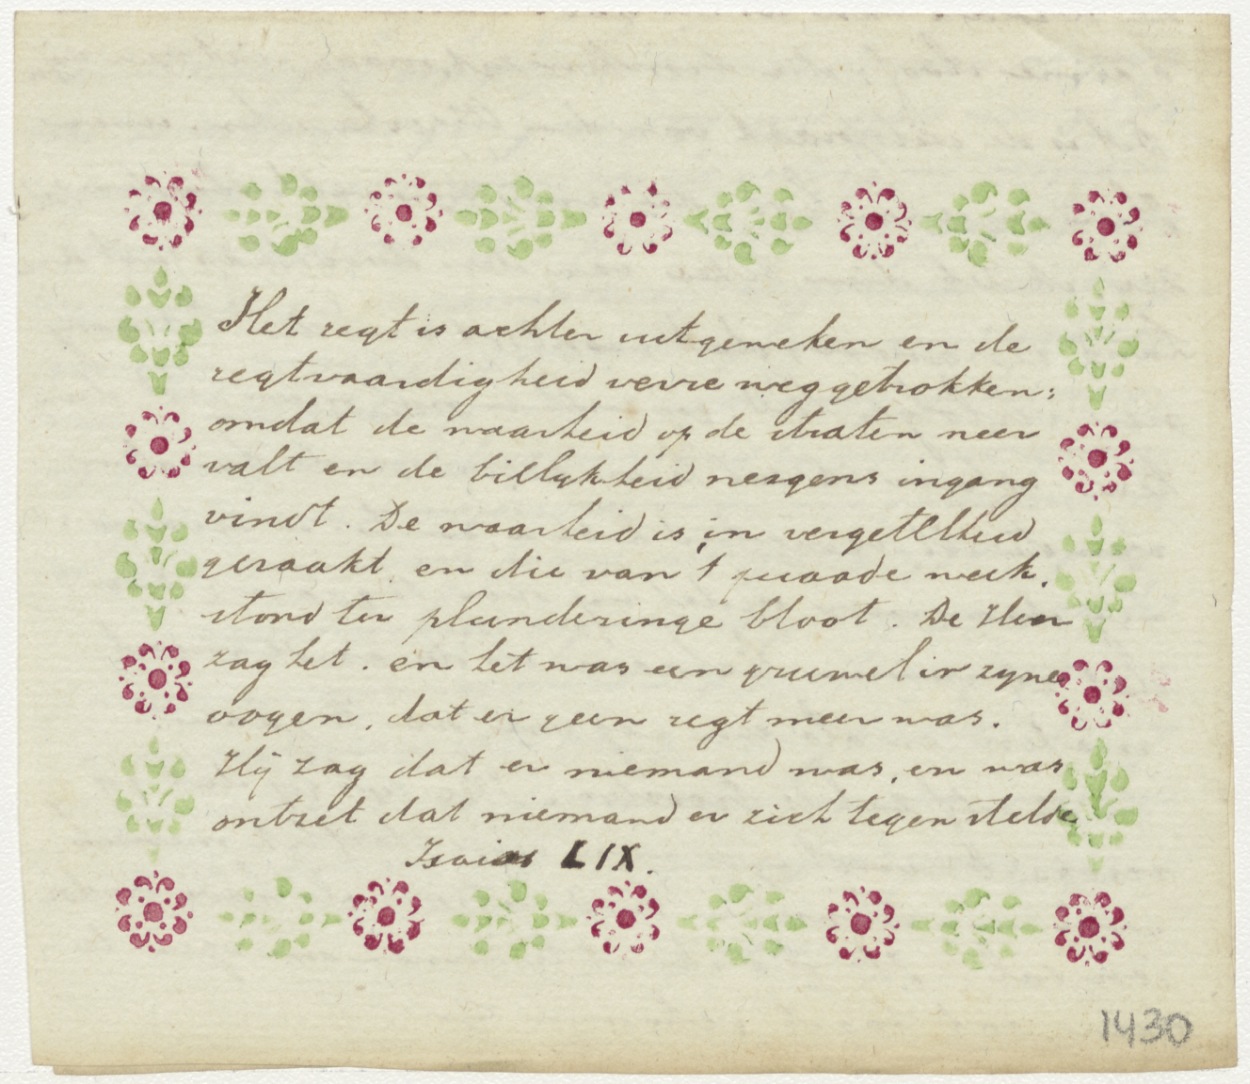 Het regt is achter uitgeweken en de
regtvaardigheid verre weggetrokken:
omdat de waarheid op de straten neer
valt en de billykheid nergens ingang
vindt. De waarheid is, in vergetelheid
geraakt en die van 't quaade week,
stond ter plunderinge bloot. De Heer
zag het. en het was een gruwel in zyne
oogen, dat er geen regt meer was.
Hij zag dat er niemand was, en was
ontzet dat niemand er zich tegen stelde
Isaias LIX.
1430